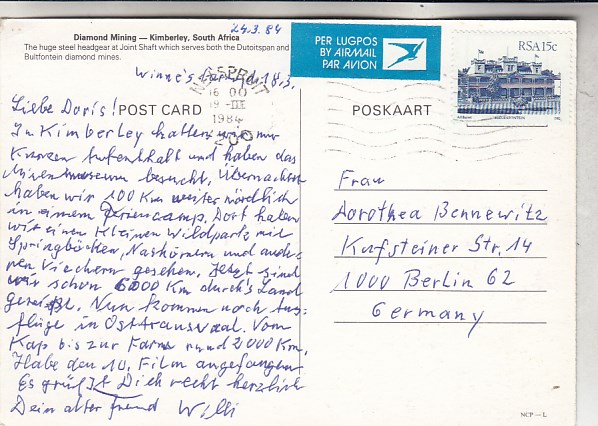 24.3.84
Diamond Mining — Kimberley, South Africa
The huge steel headgear at Joint Shaft which serves both the Dutoitspan and
Bultfontein diamond mines.
PER LUGPOS
BY AIRMAIL
PAR AVION
RSA 15c
18.3.
16 00
19 -III
1984
POST CARD
POSKAART
Liebe Doris!
In Kimberley hatten wir nur
kurzen Aufenthalt und haben das
Minenmuseum besucht, Übernachtet
haben wir 100 Km weiter nördlich
in einem Feriencamp. Dort haben
wir einen kleinen Wildpark mit
Springböcken, Nashörnern und ande-
ren Viechern gesehen. Jetzt sind
wir schon 6000 Km durch's Land
gereist. Nun kommen noch Aus-
flüge in Osttransvaal. Vom
Kap bis zur Farm rund 2000 Km.
Habe den 10. Film angefangen
Es grüßt Dich recht herzlich
Dein alter Freund Willi
Frau
Dorothea Bennewitz
Kufsteiner Str. 14
1000 Berlin 62
Germany
NCP — L